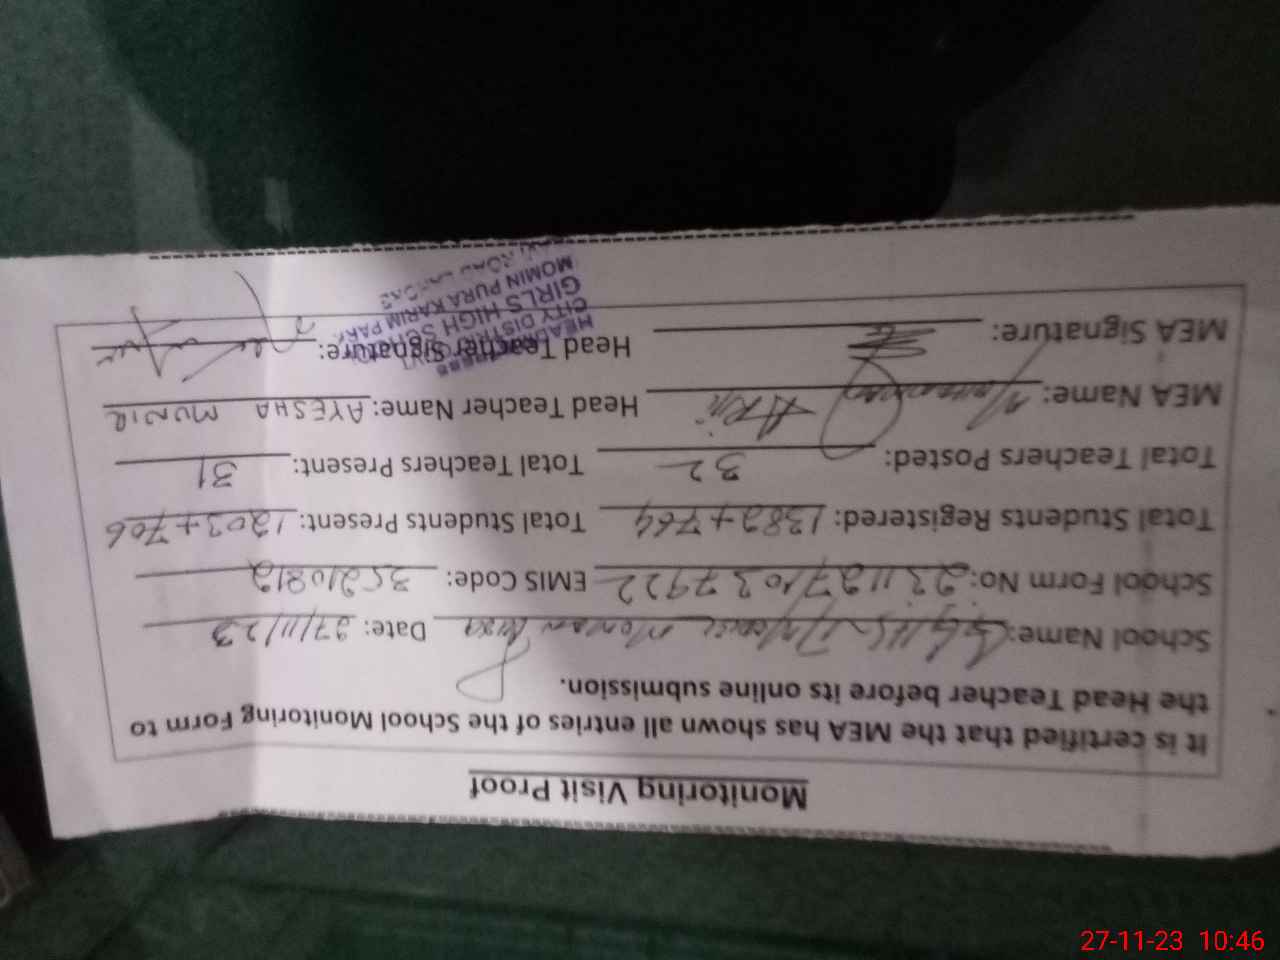 Monitoring Visit Proof
It is certified that the MEA has shown all entries of the School Monitoring Form to
the Head Teacher before its online submission.
School Name: Date: 27/11/23
School Form No: 2311271037922 EMIS Code: 35210812
Total Students Registered: 1382+764 Total Students Present: 1203+706
Total Teachers Posted: 32 Total Teachers Present: 31
MEA Name: Head Teacher Name: AYESHA MUNIR
MEA Signature: Head Teacher Signature:
CITY DISTRICT
GIRLS HIGH
MOMIN PURA KARIM PARK
ROAD
27-11-23 10:46